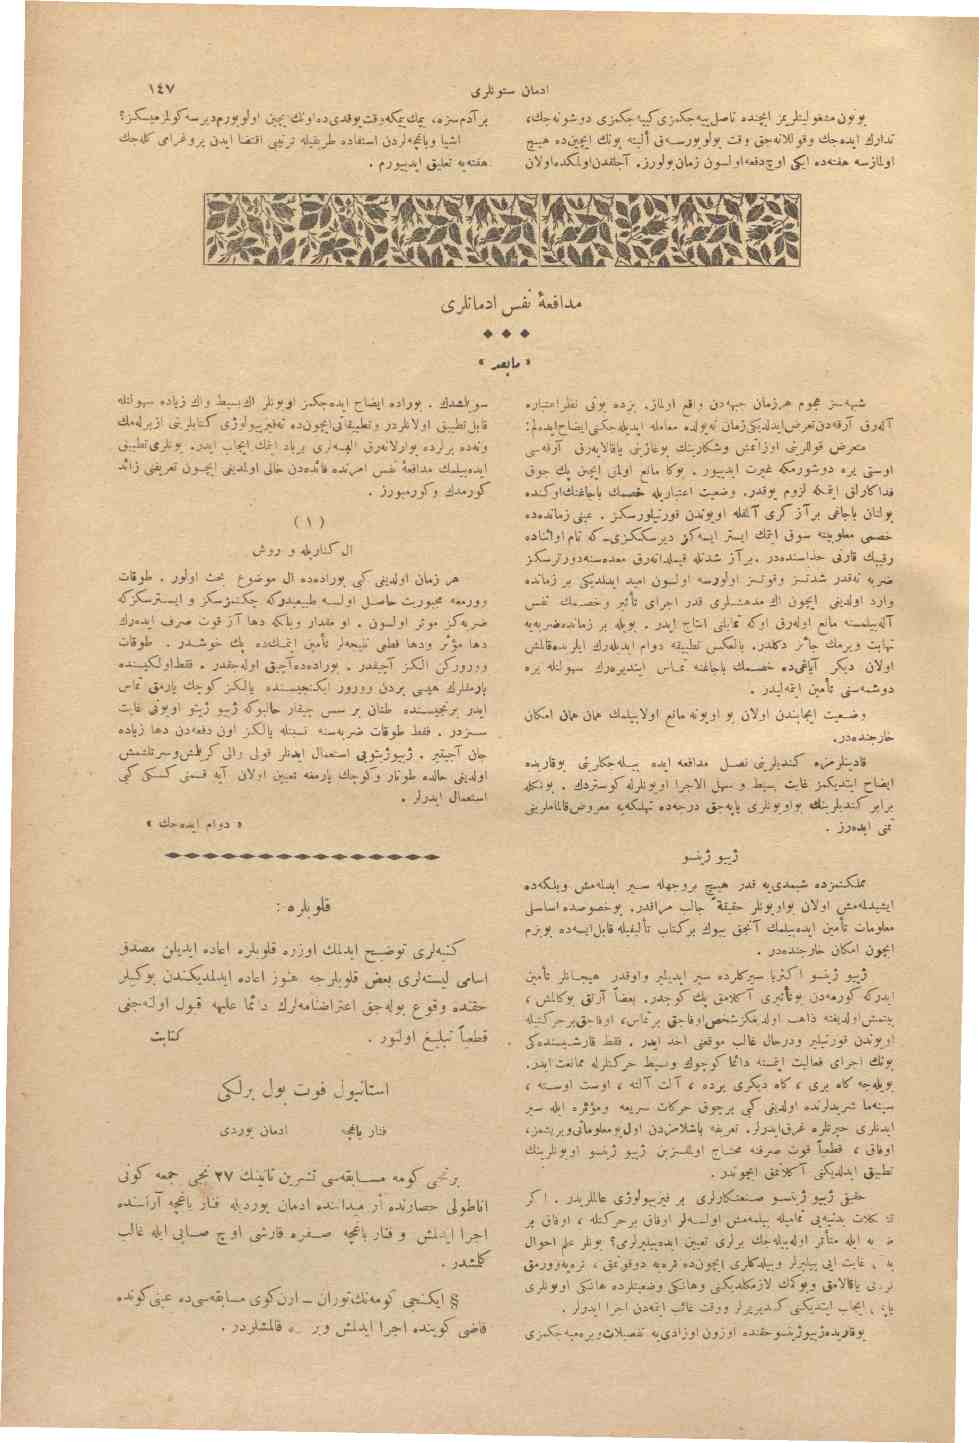 ادمان ستونلری
١٤٧
بوتون مشغولیتلریمز ایچنده ناصل‌ییه‌جكمزی‌كییه‌جكمزی دوشونه‌جك،
تدارك ایده‌جك وقوللانه‌جق وقت بولویورسه‌ق ألبته بونك ایچین‌ده هیچ
اولمازسه هفته‌ده ایكی اوچ‌دفعه‌اولسون زمان‌بولورز. آجلقدن‌اولمكده‌اولان
برآدم‌سزه، یمك‌ییمكه‌وقت‌یوقدی‌ده‌اونك‌ایچین اولویورم‌دیرسه‌كولمزمیسكز؟
اشیا وباغچه‌لردن استفاده طریقیله ترتیبی اقتضا ایدن پروغرامی كله‌جك
هفته‌یه تعلیق ایدییورم .
مدافعهٔ نفس ادمانلری
« مابعد »
شبهه‌سز هجوم هرزمان جبهه‌دن واقع اولماز. بزده بونی نظراعتباره
آله‌رق آرقه‌دن‌تعرض‌ایدلدیكی‌زمان نه‌یولده معامله ایدیله‌جكنی‌ایضاح‌ایده‌لم:
متعرض قوللرینی اوزاتمش وشكارینك بوغازینی یاقالایه‌رق آرقه‌سی
اوستی یره دوشورمكه غیرت ایدییور. بوكا مانع اولمانی ایچین پك چوق
فداكارلق ایتمكه لزوم یوقدر. وضعیت اعتباریله خصمك باجاغنك‌اوكنده
بولنان باجاغی برآز كری آلمقله اویوندن قورتیلورسكز. عینی زمانده‌ده
خصمی مغلوبیته سوق ایتمك ایستر ایسه‌كز دیرسككزی‌ـ‌كه تام اواثناده
رقیبك قارنی حذاسنده‌در .برآز شدتله قیملدانه‌رق معده‌سنه‌دورترسكز
ضربه نه‌قدر شدتسز وقوتسز اولورسه اولسون امید ایدلدیكی بر زمانده
وارد اولدیغی ایچون اك مدهشلری قدر اجرای تأثیر وخصمك نفس
آله‌بیلمسنه مانع اوله‌رق اوكه تمایلنی انتاج ایدر. بویله بر زمانده‌ضربه‌یه
نهایت ویرمك جائز دكلدر. بالعكس تطبیقه دوام ایدیله‌رك ایلریده‌قالمش
اولان دیكر آیاغی‌ده خصمك باجاغنه تماس ایتدیره‌رك سهولتله یره
دوشمه‌سنی تأمین ایتمه‌لیدر .
وضعیت ایجابندن اولان بو اویونه‌مانع اولابیلمك همان همان امكان
خارجنده‌در.
قادینلرمزه كندیلرینی نصل مدافعه ایده بیله‌جكلرینی یوقاریده
ایضاح ایتدیكمز غایت بسیط و سهل الاجرا اویونلرله كوستردك . بونكله
برابر كندیلرینك بواویونلری یاپه‌جق درجه‌ده تهلكه‌یه معروض‌قالماملرینی
تمنی ایده‌رز .
ژییو ژیتسو
مملكتمزده شیمدی‌یه قدر هیچ بروجهله سیر ایدلمه‌مش وبلكه‌ده
ایشیدلمه‌مش اولان بواویونلر حقیقةً جالب مراقدر. بوخصوصده اساسلی
معلومات تأمین ایده‌بیلمك آنجق بیوك بركتاب تألیفیله قابل‌ایسه‌ده بوبزم
ایچون امكان خارجنده‌در .
ژییو ژیتسو اكثریا سیركلرده سیر ایدیلیر واوقدر هیجانلر تأمین
ایدركه كورمه‌دن بوتأثیری آكلامق پك كوجدر. بعضاً آرتق بوكالمش ،
بیتمش‌اولدیغنه ذاهب اولدیغكزشخص‌اوفاجق برتماس، اوفاجق‌برحركتیله
اویوندن قورتیلیر ودرحال غالب موقعنی اخذ ایدر. فقط قارشیسنده‌كی
بونك اجرای فعالیت ایتمسنه دائما كوچوك وبسیط حركتلرله ممانعت‌ایدر.
بویله‌جه كاه بری ، كاه دیكری یرده ، آلت آلته ، اوست اوسته ،
سینه‌ما شریدلرنده اولدیغی كبی برچوق حركات سریعه ومؤثره ایله سیر
ایدنلری حیرتلره غرق‌ایدرلر. تعریفه باشلامزدن اول‌بومعلوماتی‌ویریشمز،
اوفاق ، قطعیاً قوت صرفنه محتاج اولمقسزین ژییو ژیتسو اویونلرینك
تطبیق ایدلدیكنی آكلاتمق ایچوندر .
حقیقی ژییو ژیتسو صنعتكارلری بر فیزیولوژی عالملریدر . اكر
تشكلات بدنیه‌یی تمامیله بیلمه‌مش اولسه‌لر اوفاق برحركتله ، اوفاق بر
ضربه ایله متأثر اوله‌بیله‌جك یرلری تعیین ایده‌بیلیرلرمی؟ بونلر علم احوال
غایت ایی بیلیرلر وبیلدكلری ایچون‌ده نره‌یه دوقونمق ، نره‌یه‌وورمق
یاقالامق وبوكمك لازمكلدیكنی وهانكی وضعیتلرده هانكی اویونلری
ایجاب ایتدیكنی كسدیریرلر ووقت غائب ایتمه‌دن اجرا ایدرلر .
یوقاریده‌ژییوژیتسوحقنده اوزون اوزادی‌یه تفصیلات‌ویره‌میه‌جكمزی
سویلشدك . بوراده ایضاح ایده‌جكمز اویونلر اك‌بسیط واك زیاده سهولتله
قابل‌تطبیق اولانلردر وتطبیقاتی‌ایچون‌ده نه‌فیزیولوژی كتابلرینی ازبرله‌مك
ونه‌ده یرلرده یوارلانه‌رق البسه‌لری برباد ایتمك ایجاب ایدر. بونلری‌تطبیق
ایده‌بیلمك مدافعهٔ نفس امرنده فائده‌دن خالی اولمدیغی ایچون تعریفنی زائد
كورمدك وكورمیورز .
( ١ )
ال كنارلریله و روش
هر زمان اولدیغی كبی بوراده‌ده ال موضوع بحث اولور . طوقات
وورمغه مجبوریت حاصل اولسه طبیعیدركه چكنمزسكز و ایسترسكزكه
ضربه‌كز موثر اولسون . او مقدار وبلكه دها آز قوت صرف ایده‌رك
دها مؤثر ودها قطعی نتیجه‌لر تأمین ایتمكده پك خوشدر . طوقات
وورورکن الكز آچیقدر . بوراده‌ده‌آچیق اوله‌جقدر . فقط‌اولكیسنده
پارمقلرك هپسی بردن وورور ایكنجیسنده یالكز كوچك پارمق تماس
ایدر برنجیسنده طنان بر سس چیقار حالبوكه ژییو ژیتو اویونی غایت
سسزدر . فقط طوقات ضربه‌سنه نسبتله یالكز اون دفعه‌دن دها زیاده
جان آجیتیر . ژییوژیتویی استعمال ایدنلر قولی والی كریلمش‌وسرتلشمش
اولدیغی حالده طوتار وكوچك پارمغه تعیین اولان آیه قسمنی كسكی كبی
استعمال ایدرلر .
« دوام ایده‌جك »
قلوبلره :
كنیه‌لری توضیح ایدلمك اوزره قلوبلره اعاده ایدیلن مصدق
اسامی لیسته‌لری بعض قلوبلرجه هنوز اعاده ایدلمدیكندن بوكبیلر
حقنده وقوع بوله‌جق اعتراضنامه‌لرك دائما علیهه قبول اولنه‌جغی
قطعیاً تبلیغ اولنور .
كتابت
استانبول فوت بول برلكی
فنار باغچه
ادمان یوردی
برنجی كومه مسابقه‌سی تشرین ثانینك ٢٧ نجی جمعه كونی
اناطولی حصارنده أر میداننده ادمان یوردیله فنار باغچه آراسنده
اجرا ایدلمش و فنار باغچه صفره قارشی اوچ صایی ایله غالب
كلمشدر .
§ ایكنجی كومه‌نك‌توران ـ ارن‌كوی مسابقه‌سی‌ده عینی‌كونده
قاضی كوینده اجرا ایدلمش قالمشلردر .